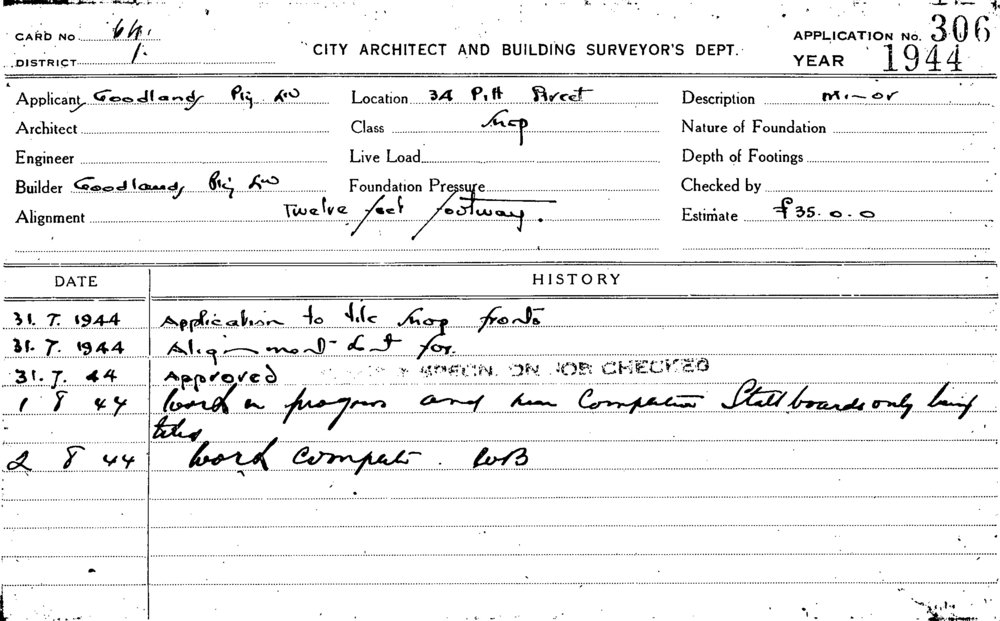 CARD No 64.
APPLICATION No. 306
DISTRICT 1.
CITY ARCHITECT AND BUILDING SURVEYOR'S DEPT.
YEAR 1944
Applicant Goodlands Pty Ltd
Location 34 Pitt Street
Description minor
Architect
Class Shop
Nature of Foundation
Engineer
Live Load
Depth of Footings
Builder Goodlands Pty Ltd
Foundation Pressure
Checked by
Alignment Twelve feet footway.
Estimate £35.0.0
DATE HISTORY
31.7.1944 Application to tile shop fronts
31.7.1944 Alignment for.
31.7.44 Approved SPECIN. ON JOB CHECKED
1 8 44 Work in progress and near completion Stall boards only being
tiled
2 8 44 Work complete. WB